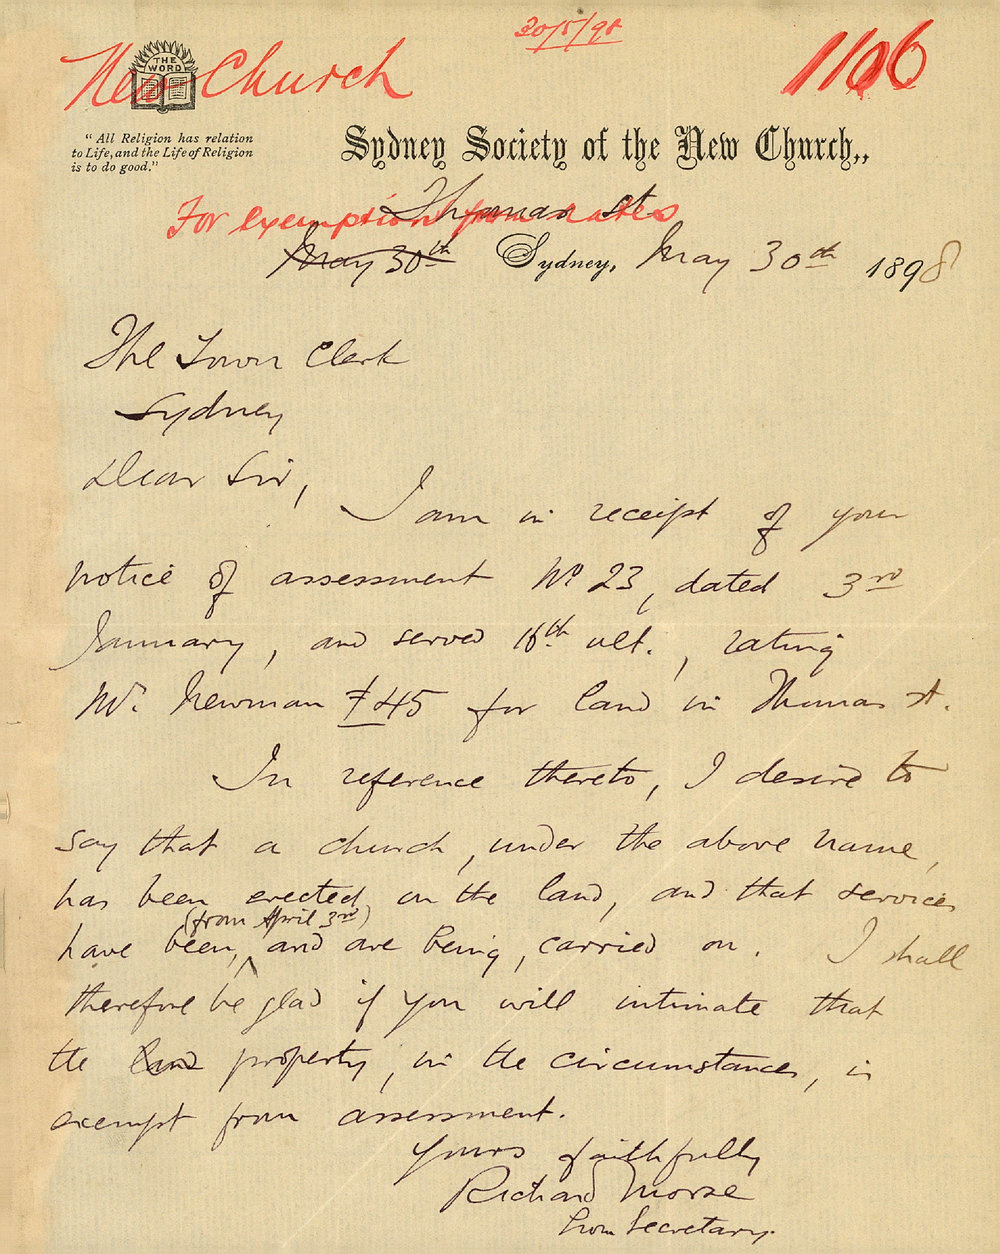 30/5/98
1106
New Church
THE WORD
"All Religion has relation
to Life, and the Life of Religion
is to do good."
Sydney Society of the New Church,,
Thomas St
For exemption from rates
May 30th Sydney, May 30th 1898
The Town Clerk
Sydney
Dear Sir,
I am in receipt of your
notice of assessment No 23, dated 3rd
January, and served 16th ult., rating
Mr. Newman £45 for land in Thomas St.
In reference thereto, I desire to
say that a church, under the above name,
has been erected on the land, and that services
(from April 3rd)
have been, and are being, carried on. I shall
therefore be glad if you will intimate that
the land property, in the circumstances, is
exempt from assessment.
Yours faithfully
Richard Morse
Hon Secretary.